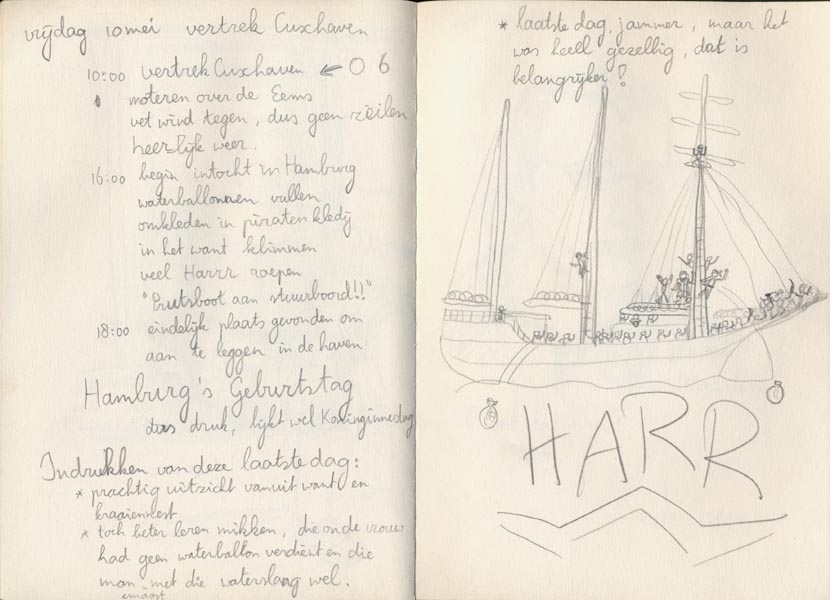 vrijdag 10 mei vertrek Cuxhaven
10:00 vertrek Cuxhaven ← O 6
moteren over de Eems
vet wind tegen, dus geen zeilen
heerlijk weer.
16:00 begin intocht in Hamburg
waterballonnen vullen
omkleden in piraten kledij
in het want klimmen
veel Harrr roepen
"Prutsboot aan stuurboord!!"
18:00 eindelijk plaats gevonden om
aan te leggen in de haven
Hamburg's Geburtstag
dus druk, lijkt wel Koninginnedag
Indrukken van deze laatste dag:
* prachtig uitzicht vanuit want en
kraaiennest
* toch beter leren mikken, die oude vrouw
had geen waterballon verdient en die
man met die waterslang wel.
ernaast
* laatste dag, jammer, maar het
was heell gezellig, dat is
belangrijker!
HARR